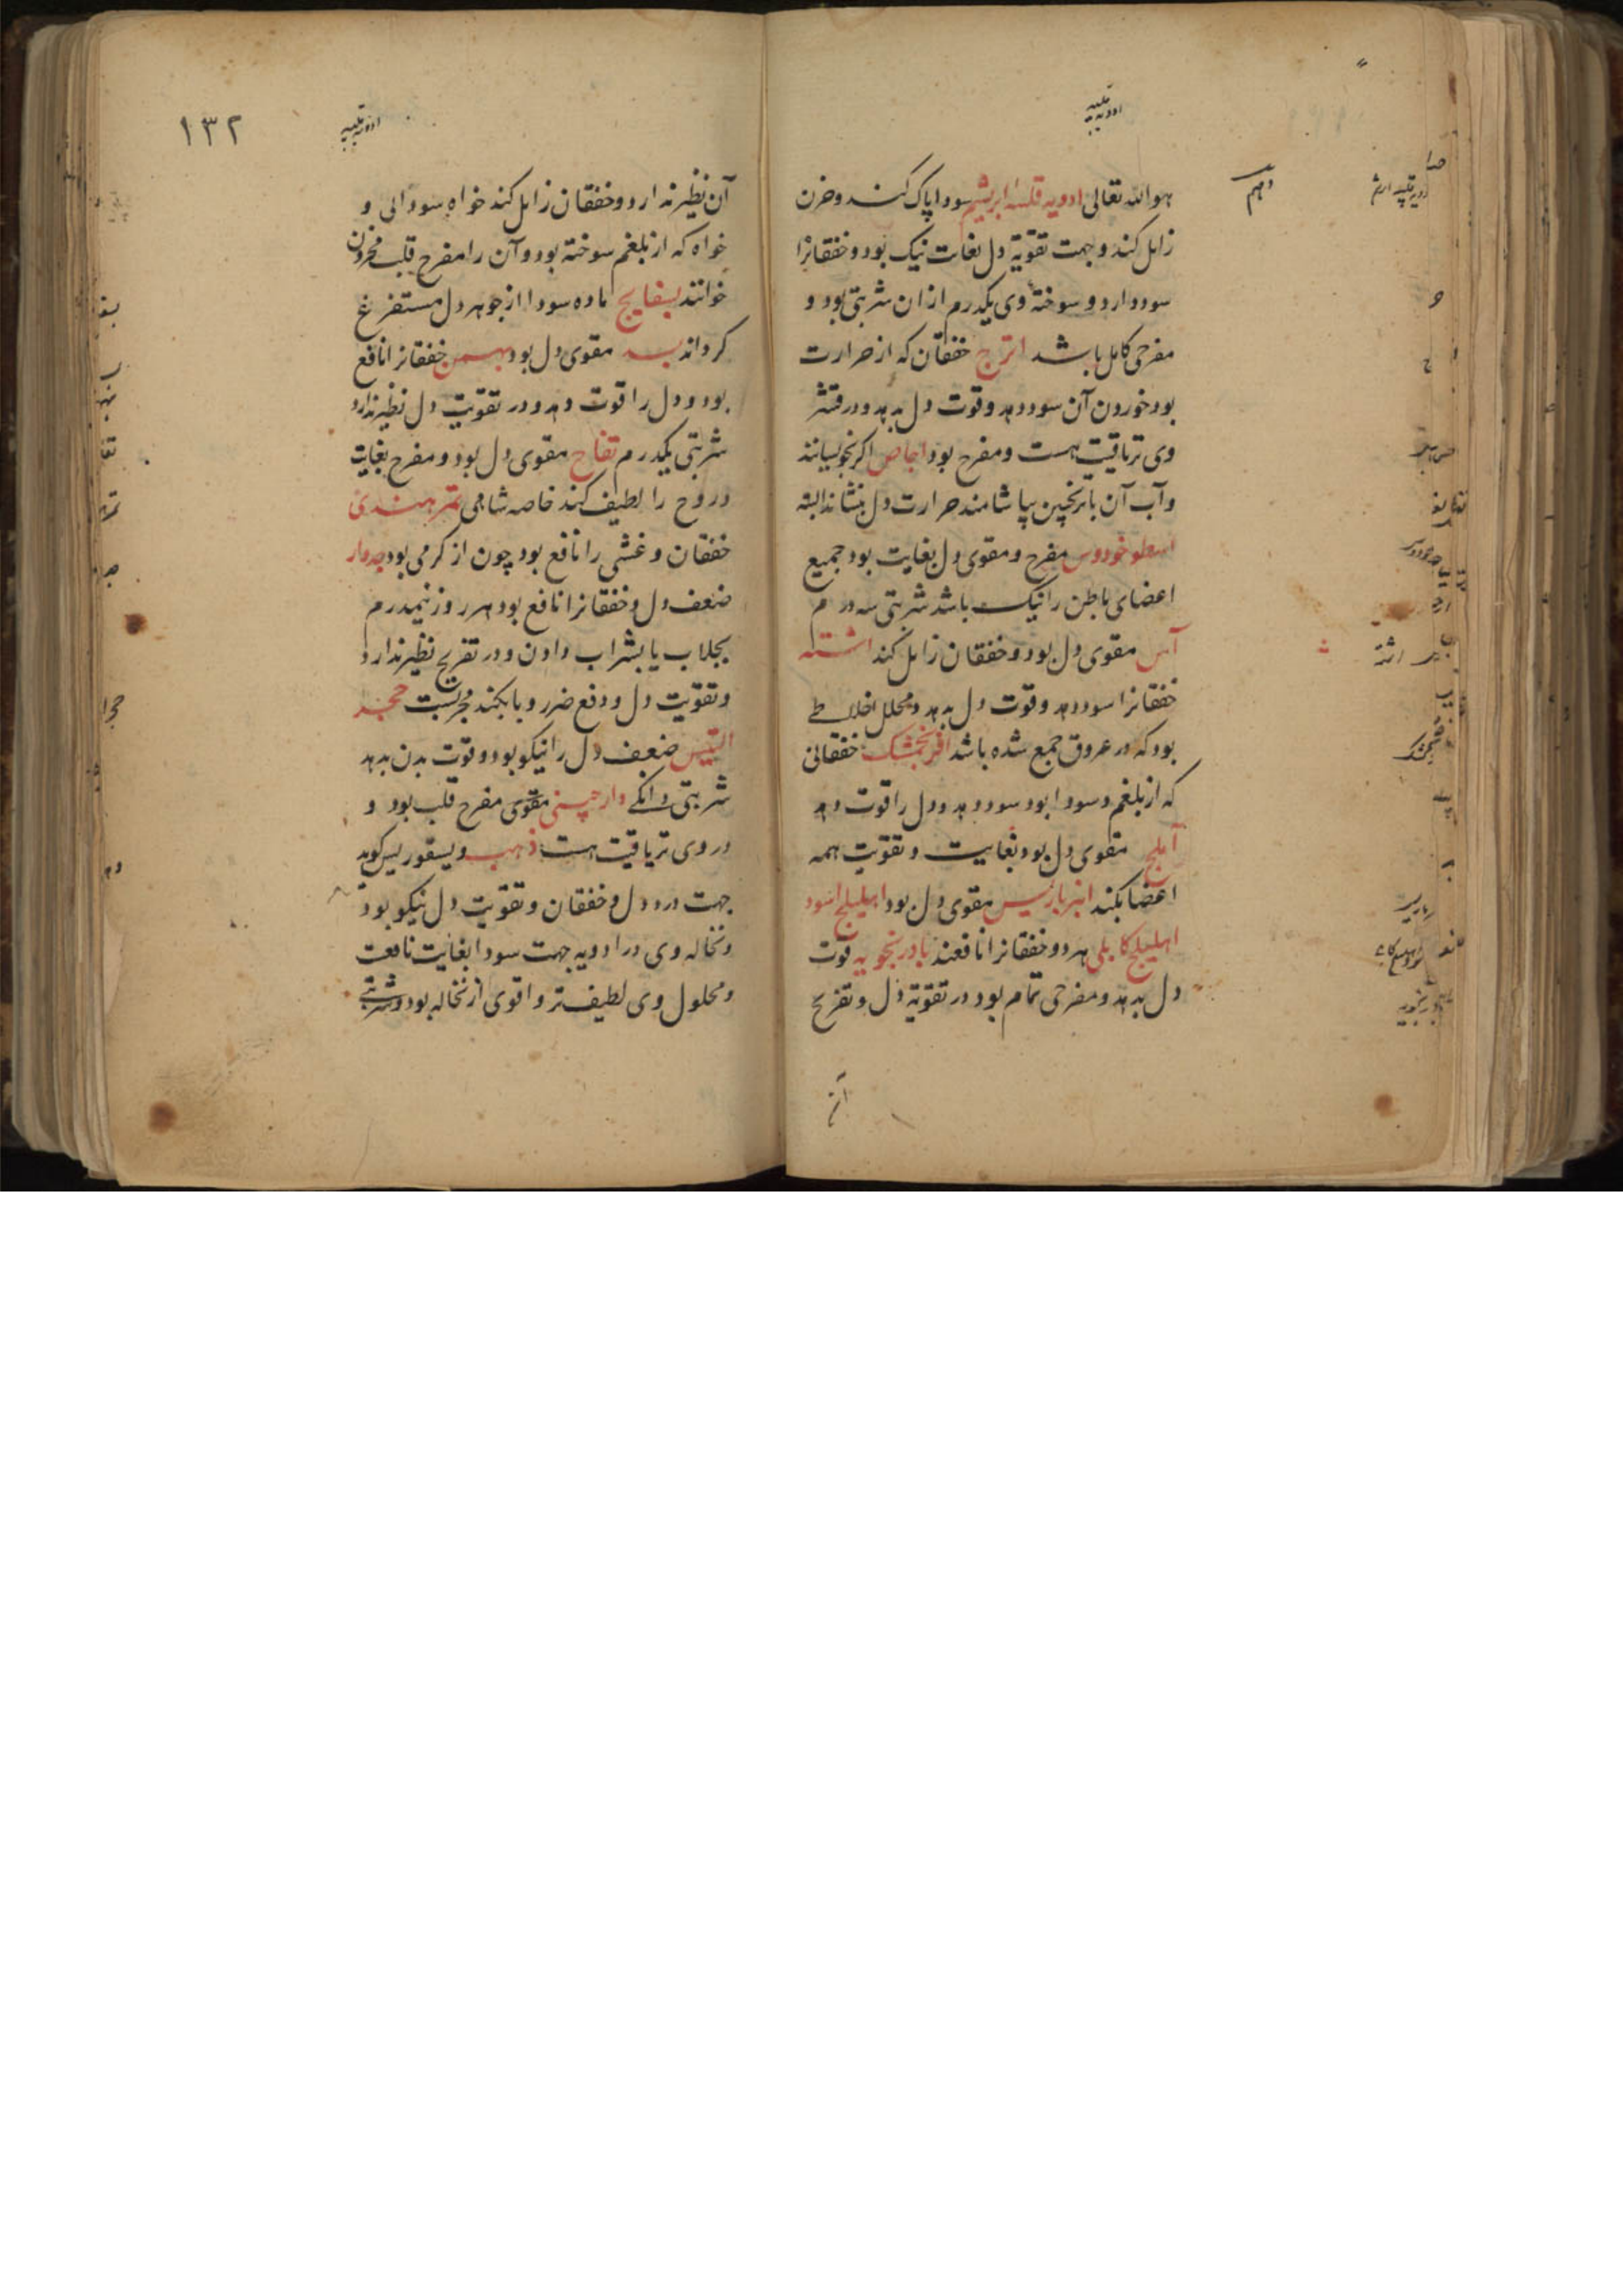 ادویه قلبیه
هو الله تعالی ادویه قلبیه ابریشم سودا پاک کند و حزن
زایل کند و جهت تقویة دل بغایت نیک بود و خفقانرا
سود دارد و سوختهٔ وی یکدرم از ان شربتی بود و
مفرحی کامل باشد اترج خفقان که از حرارت
بود خوردن آن سود دهد و قوت دل بدهد و در قشر
وی تریاقیت هست و مفرح بود اجاص اکر بخوسیانند
و آب آن با ترنجبین بیاشامند حرارت دل بنشاند البته
اسطوخودوس مفرح و مقوی دل بغایت بود جمیع
اعضای باطن را نیک باشد شربتی سه درم
آس مقوی دل بود و خفقان زایل کند اشنه
خفقانرا سود دهد و قوت دل بدهد و محلل اخلاطی
بود که در عروق جمع شده باشد افرنجمشک خفقانی
که از بلغم و سودا بود سود دهد و دل را قوت دهد
آملج مقوی دل بود بغایت و تقویت همه
اعضا بکند انبرباریس مقوی دل بود اهلیلج اسود
اهلیلج کابلی هر دو خفقانرا نافعند بادرنجویه قوت
دل بدهد و مفرحی تمام بود در تقویة دل و تفریح
آن
ادویه قلبیه
۱۳۲
آن نظیر ندارد و خفقان زایل کند خواه سودائی و
خواه که از بلغم سوخته بود و آن را مفرح قلب محزون
خوانند بسفایج ماده سودا از جوهر دل مستفرغ
کرداند بسد مقوی دل بود بهمن خفقانرا نافع
بود و دل را قوت دهد و در تقویت دل نظیر ندارد
شربتی یکدرم تفاح مقوی دل بود و مفرح بغایت
و روح را لطیف کند خاصه شامی تمر هندی
خفقان و غشی را نافع بود چون از کرمی بود جدوار
ضعف دل و خفقانرا نافع بود هر روز نیمدرم
بجلاب یا بشراب دادن و در تفریح نظیر ندارد
و تقویت دل و دفع ضرر وبا بکند مجربست حجر
التیس ضعف دل را نیکو بود و قوت بدن بدهد
شربتی دانکی دارچینی مقوی مفرح قلب بود و
در وی تریاقیت هست ذهب دیسقوریدس کوید
جهت درد دل و خفقان و تقویت دل نیکو بود
و نخاله وی در ادویه جهت سودا بغایت نافعت
و محلول وی لطیف‌تر و اقوی از نخاله بود و شربتی